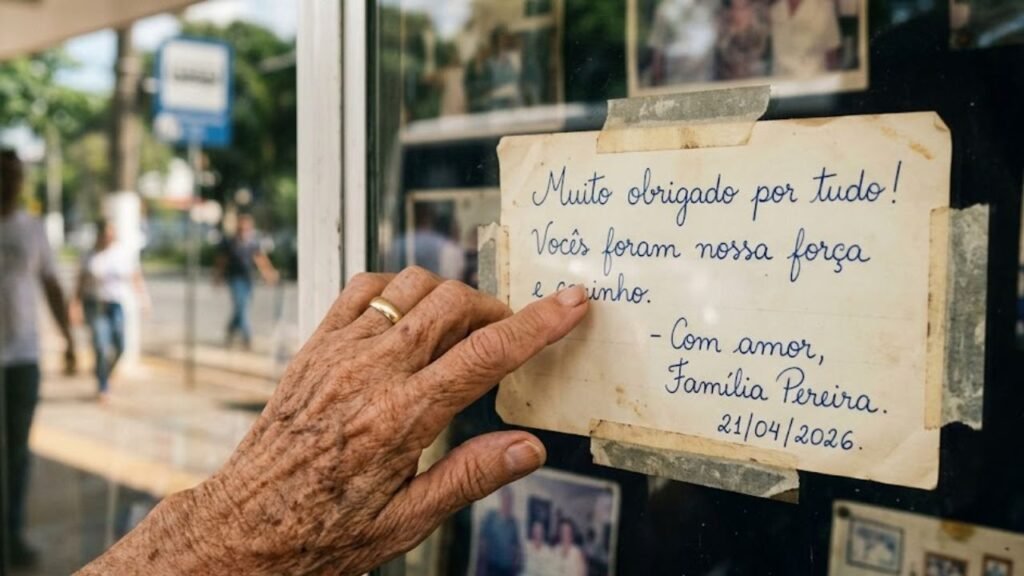 Muito obrigado por tudo!
Vocês foram nossa força
e inho.
- Com amor,
Família Pereira.
21/04/2026.